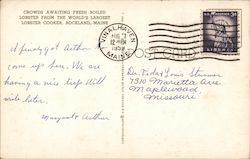 CROWDS AWAITING FRESH BOILED
LOBSTER FROM THE WORLD'S LARGEST
LOBSTER COOKER, ROCKLAND, MAINE
VINALHAVEN
AUG 7
12 M
1958
MAINE
POST CARD
I finally got Arthur to
come up here. We are
having a nice trip. Will
write later.
Margaret & Arthur
Dr. & Mrs. Louis
7510 Marietta Ave
Maplewood,
Missouri